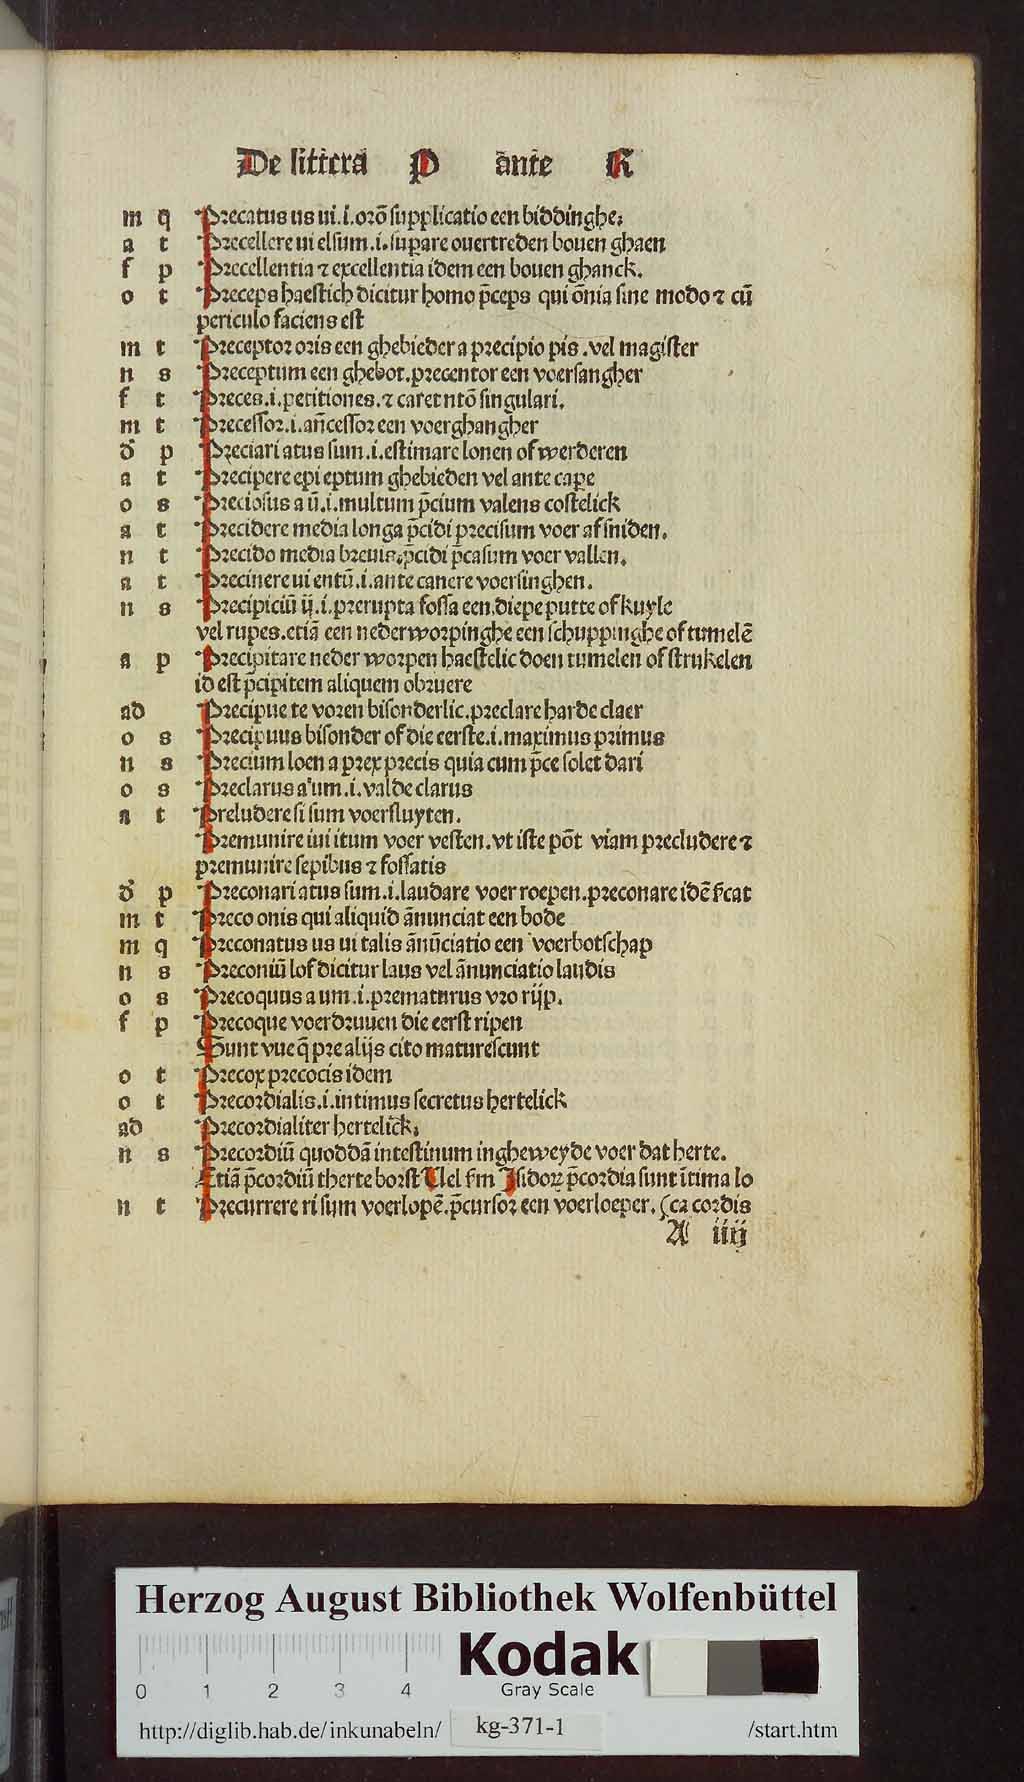 De litterā P ānte R
m q Precatus us ui .i. orō supplicatio een biddinghe.
a t Precellere ui elsum .i. suꝑare ouertreden bouen ghaen
f p Precellentia ⁊ excellentia idem een bouen ghanck.
o t Preceps haestich dicitur homo p̄ceps qui oīnia sine modo ⁊ cū
periculo faciens est
m t Preceptor oris een ghebieder a precipio pis .vel magister
n s Preceptum een ghebot .precentor een voersangher
f t Preces .i. petitiones .⁊ caret ntō singulari.
m t Precessor .i. an̄cessor een voerghangher
d̄ p Preciari atus sum .i. estimare lonen of werderen
a t Precipere epi eptum ghebieden vel ante caꝑe
o s Preciosus a ū .i. multum p̄cium valens costelick
a t Precidere media longa p̄cidi precisum voer af sniden.
n t Precido media breuis .p̄cidi p̄casum voer vallen.
a t Precinere ui entū .i. ante canere voersinghen.
n s Precipiciū ij .i. prerupta fossa een .diepe putte of kuyle
vel rupes .etiā een nederworpinghe een schuppinghe of tumelē
a p Precipitare neder worpen haestelic doen tumelen of strukelen
id est p̄cipitem aliquem obruere
ad Precipue te voren bisonderlic .preclare harde claer
o s Precipuus bisonder of die eerste .i. maximus primus
n s Precium loen a prex precis quia cum p̄ce solet dari
o s Preclarus a um .i. valde clarus
a t Preludere si sum voersluyten.
Premunire iui itum voer vesten .vt iste pōt viam precludere ⁊
premunire sepibus ⁊ fossatis
d̄ p Preconari atus sum .i. laudare voer roepen .preconare idē s̄cat
m t Preco onis qui aliquid ānunciat een bode
m q Preconatus us ui talis ānūciatio een voerbotschap
n s Preconiū lof dicitur laus vel ānunciatio laudis
o s Precoquus a um .i. prematurus vro rijp.
f p Precoque voerdruuen die eerst ripen
Sunt vue q̄ pre alijs cito maturescunt
o t Precox precocis idem
o t Precordialis .i. intimus secretus hertelick
ad Precordialiter hertelick.
n s Precordiū quoddā intestinum ingheweyde voer dat herte.
Etiā p̄cordiū therte borst Uel s̄m Isidorꝝ p̄cordia sunt ītima lo
n t Precurrere ri sum voerlopē .p̄cursor een voerloeper. (ca cordis
A iiij
Herzog August Bibliothek Wolfenbüttel
0 1 2 3 4
Kodak
Gray Scale
http://diglib.hab.de/inkunabeln/ kg-371-1 /start.htm